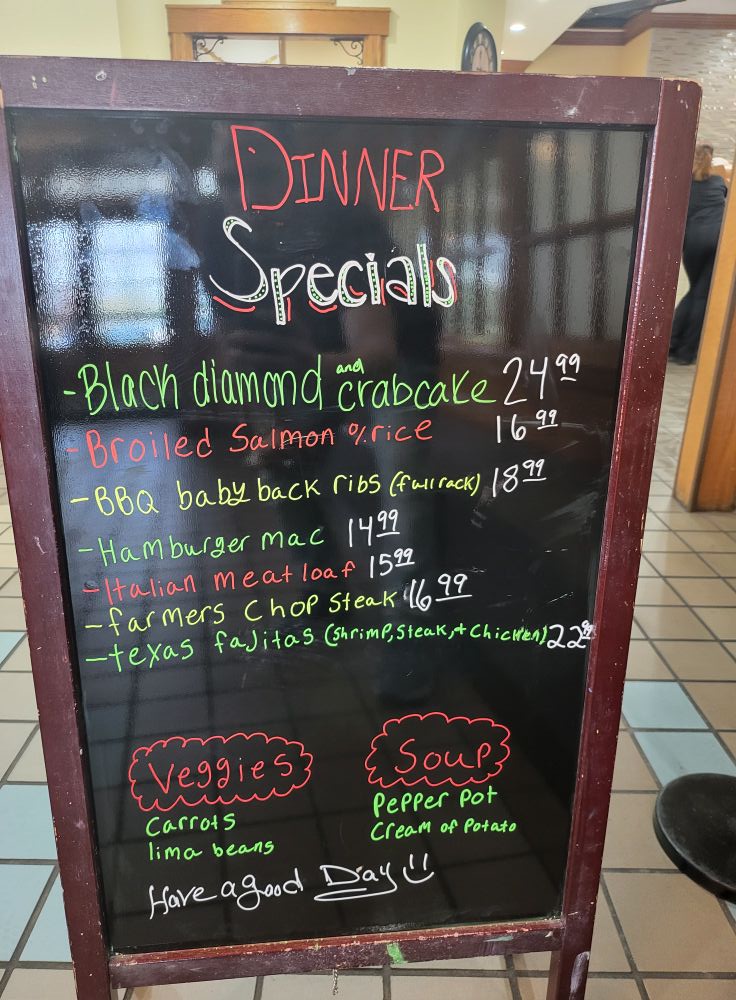 DINNER
Specials
- Black diamond and crabcake 24 99
- Broiled Salmon %rice 16 99
- BBQ baby back ribs (full rack) 18 99
- Hamburger mac 14 99
- Italian meat loaf 15 99
- farmers Chop Steak 16 99
- texas fajitas (shrimp, steak, + chicken) 22 99
Veggies
Carrots
lima beans
Soup
Pepper Pot
Cream of Potato
Have a good Day